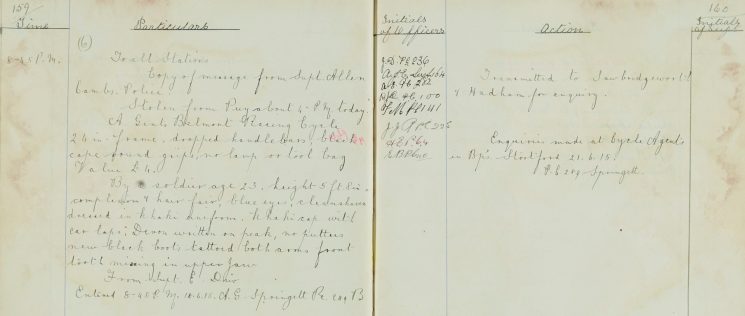 159
Time
Particulars
(6)
8-45 P.M.
To all Stations
Copy of message from Supt. Allen
Cambs. Police
Stolen from Quy about 4-P.M. today.
A Gents Belmont Racing Cycle
24 in frame, dropped handle bars, black
tape round grips, no lamp or tool bag
Value £4.
By a soldier age 23, height 5 ft 8 in
complexion & hair fair, blue eyes, cleanshaven
dressed in khaki uniform. Khaki cap with
ear laps; Devon written on peak, no putties
new black boots tattood both arms front
tooth missing in upper jaw
From Supt. E.
Enterd 8-45 P.M. 18.6.15. A.G. Springett Pc 209 B
160
Initials
of Officers
Action
Initials
of Supt
Transmitted to Sawbridgeworth
& Hadham for enquiry.
Enquiries made at Cycle Agents
in Bp's Stortford 21.6.15.
P.C 209 Springett.